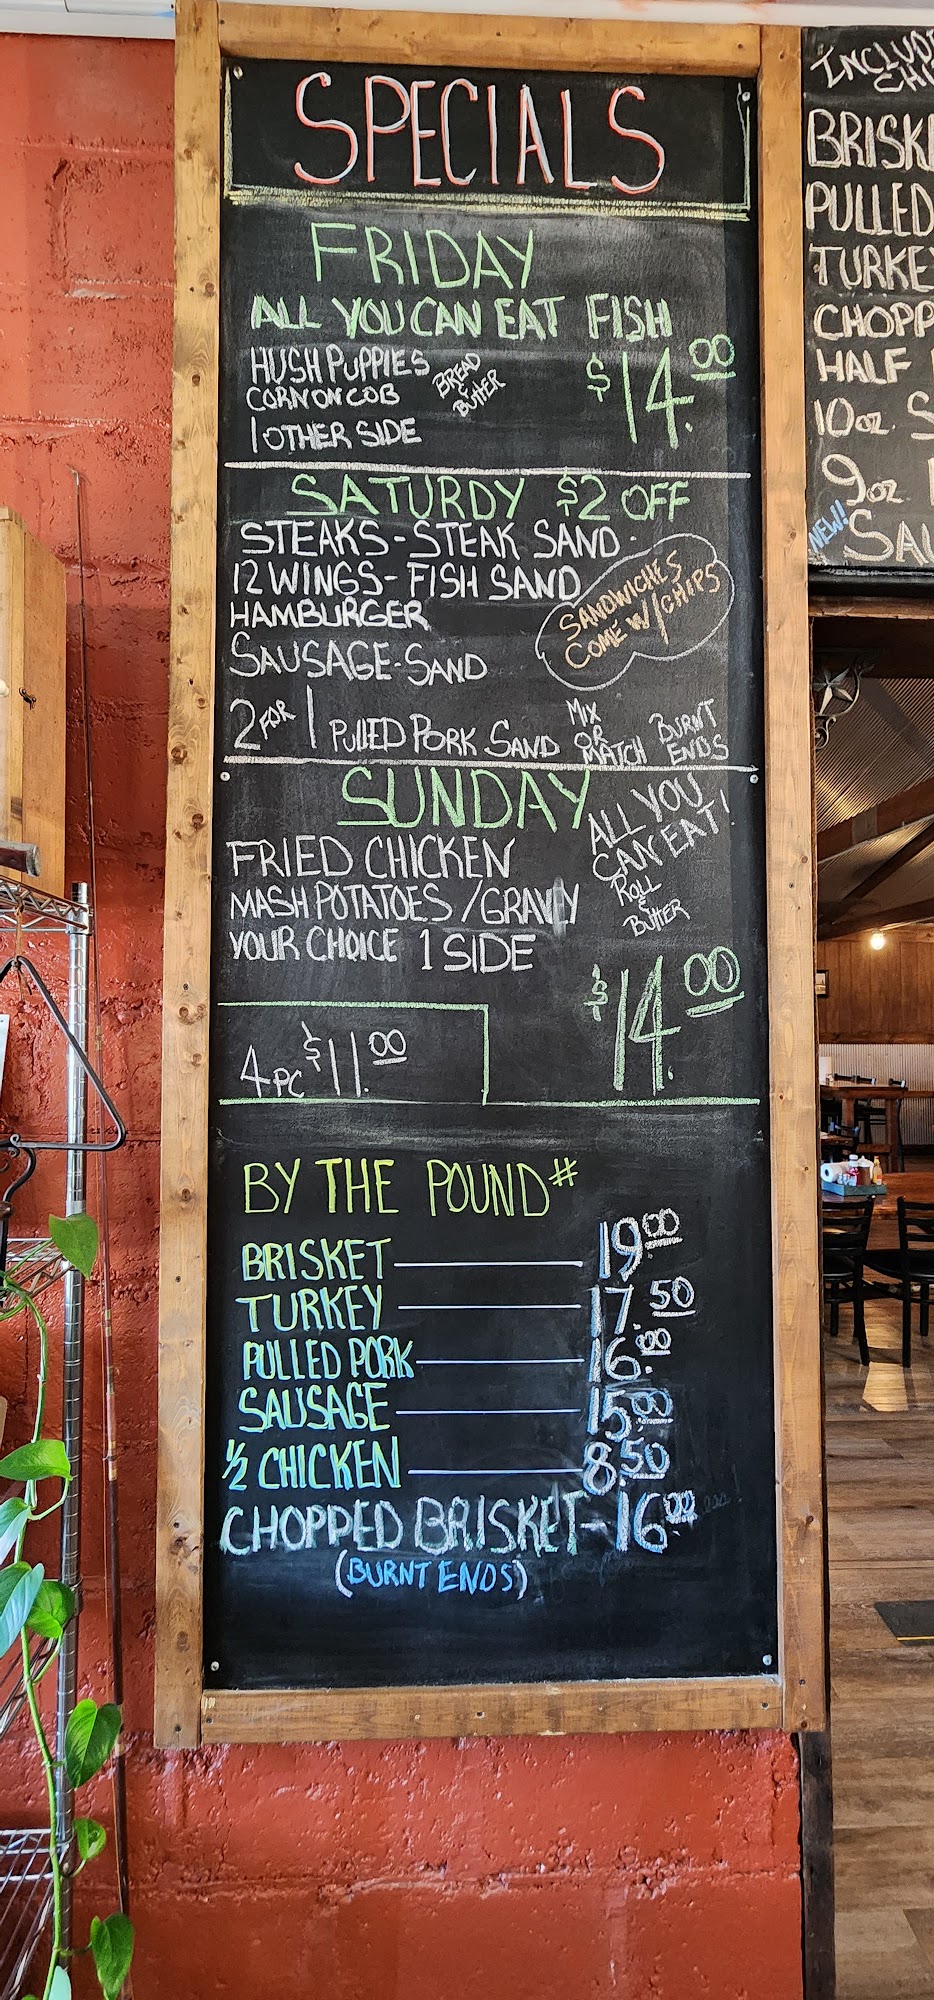 SPECIALS
FRIDAY
ALL YOU CAN EAT FISH
HUSH PUPPIES
CORN ON COB
1 OTHER SIDE
BREAD
&
BUTTER
$14.00
SATURDY $2 OFF
STEAKS - STEAK SAND.
12 WINGS - FISH SAND
HAMBURGER
SAUSAGE - SAND
SANDWICHES
COME W/CHIPS
2 FOR 1 PULLED PORK SAND
MIX
OR
MATCH
BURNT
ENDS
SUNDAY
ALL YOU
CAN EAT!
ROLL
&
BUTTER
FRIED CHICKEN
MASH POTATOES / GRAVEY
YOUR CHOICE 1 SIDE
$14.00
4 PC $11.00
BY THE POUND #
BRISKET 19.00
TURKEY 17.50
PULLED PORK 16.00
SAUSAGE 15.00
1/2 CHICKEN 8.50
CHOPPED BRISKET - 16.00
(BURNT ENDS)
INCLUD
CH
BRISK
PULLED
TURKEY
CHOPP
HALF
10oz. S
9oz
NEW!
SAU